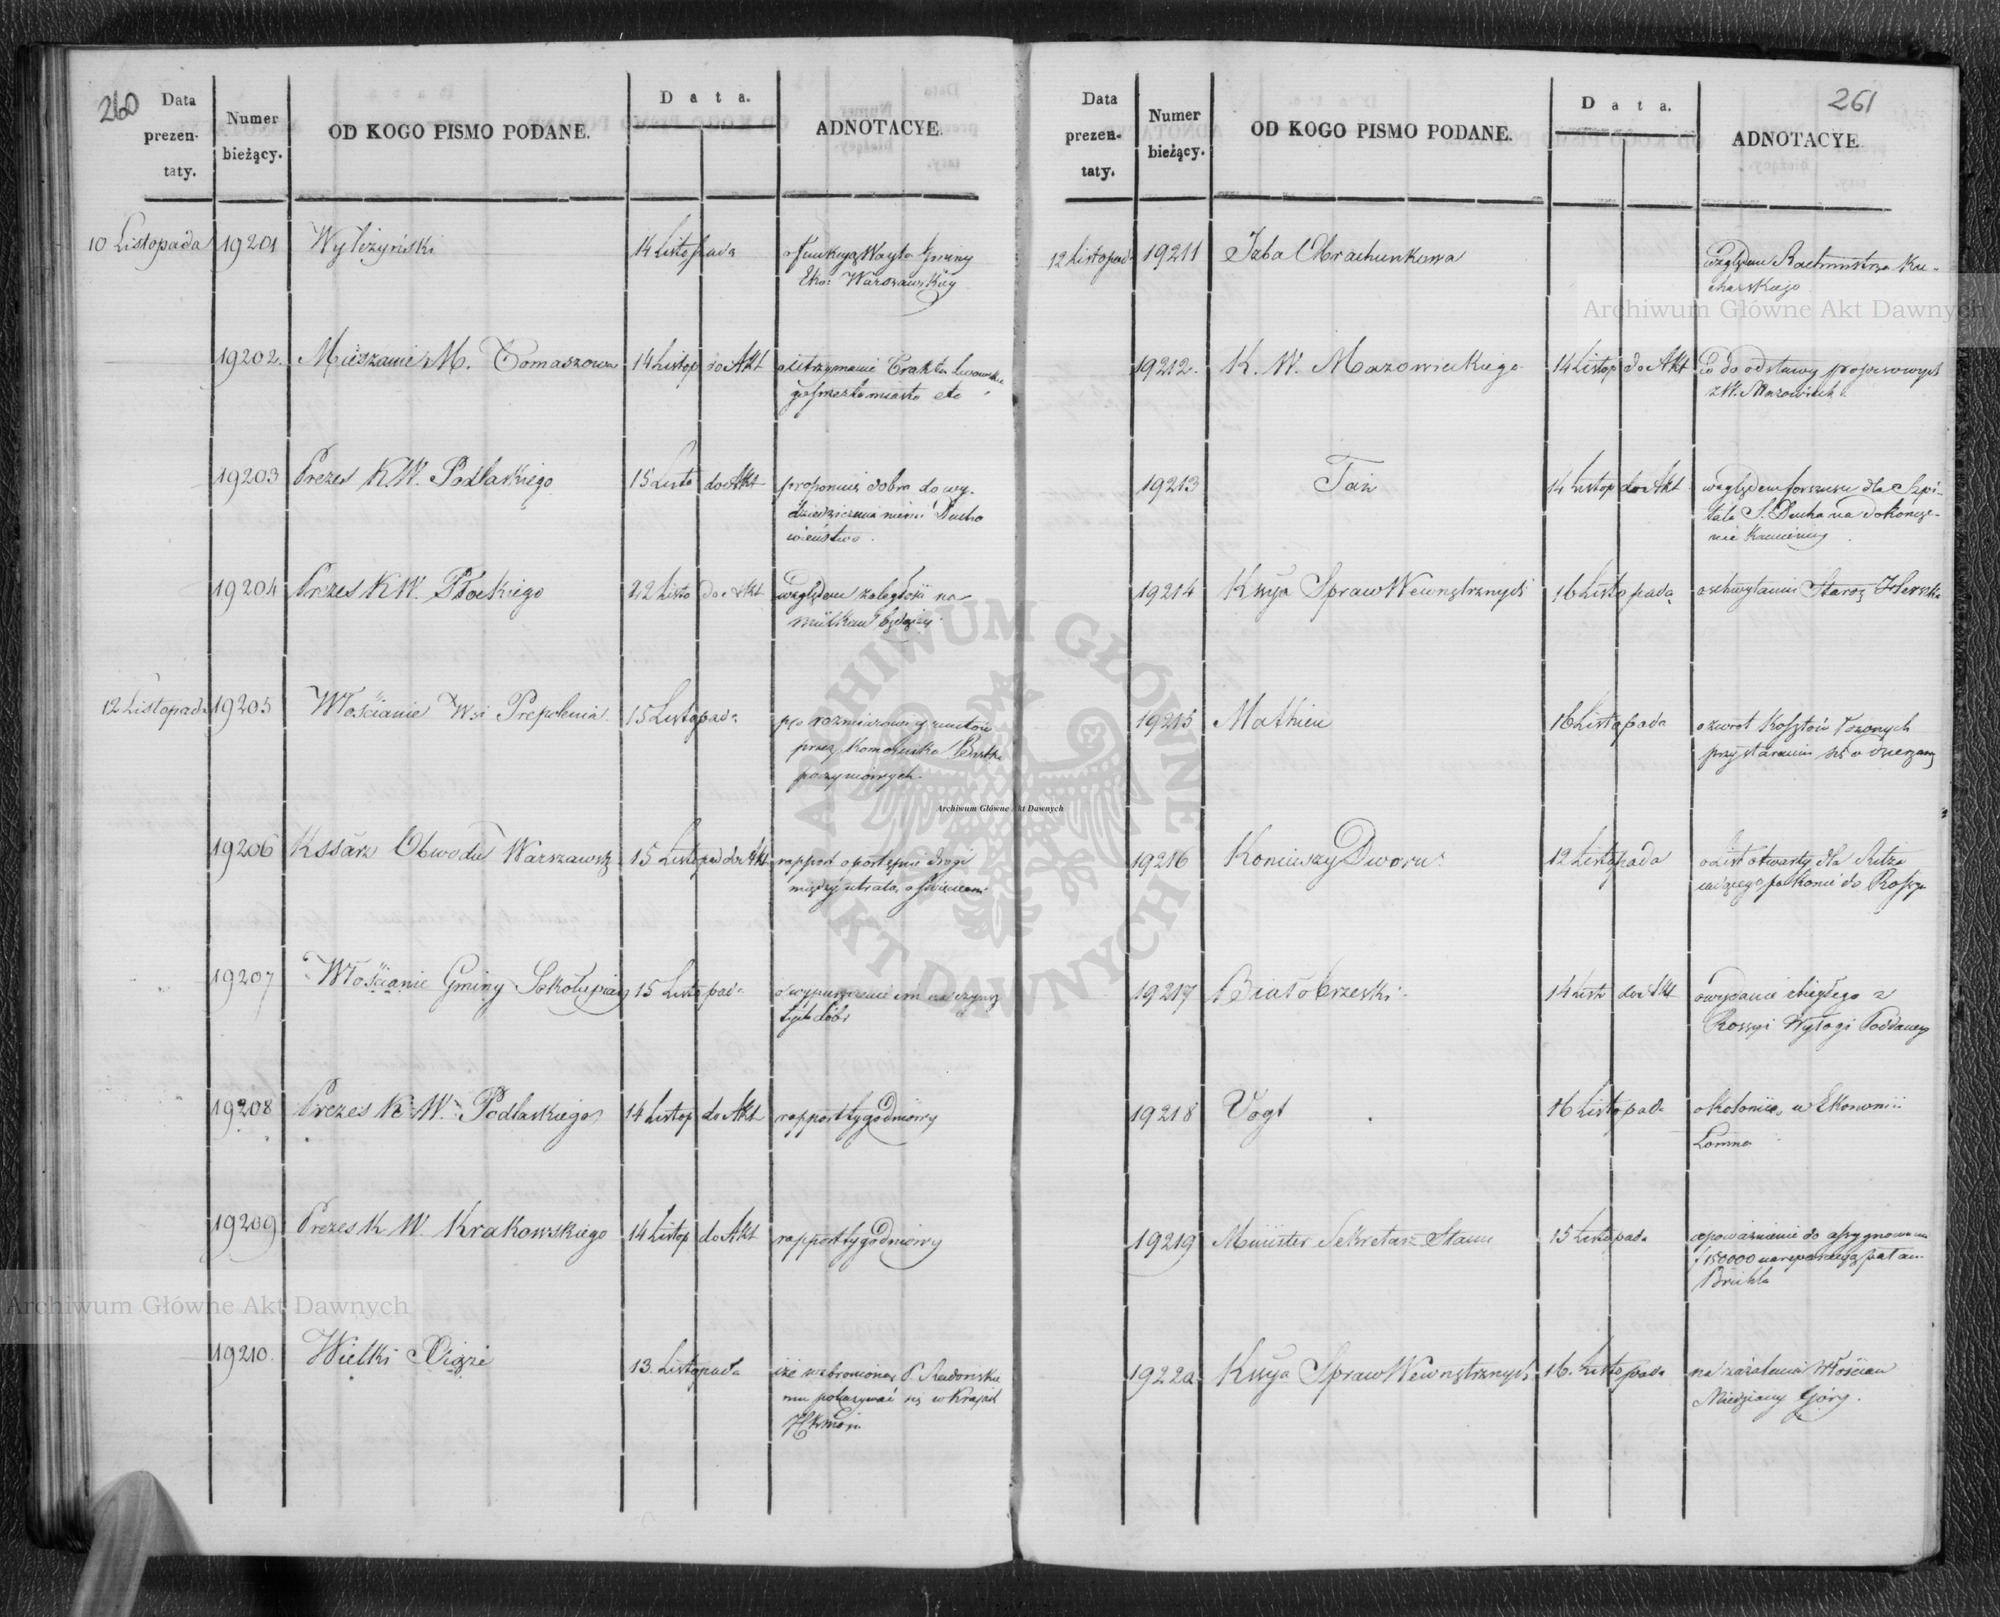 260
Data
prezen-
taty.
Numer
bieżący.
OD KOGO PISMO PODANE.
Data.
ADNOTACYE.
10 Listopada 19201 Wyleżyński 14 Listopada
o funkcyą Wayta Gminy
Eko: Warszawskiey
19202. Mieszanie M. Tomaszowa 14 Listop do Akt
o utrzymanie Traktu
miasto etc
19203 Prezes K.W. Podlaskiego 15 Listo do Akt
proponuie dobra do wy-
Ducho
wieństwo.
19204 Prezes K.W. Płockiego 22 Listo do Akt
względem zaległości na
12 Listopada 19205 Włościanie Wsi 15 Listopada
przez Komornika
19206 Kssarz Obwodu Warszawsk 15 Listopad do Akt
rapport o postępie drogi
między
19207 Włościanie Gminy 15 Listopada
o wypuszczenie im
tych dóbr
19208 Prezes K. W. Podlaskiego 14 Listop do Akt
rapport tygodniowy
19209 Prezes K W. Krakowskiego 14 Listop do Akt
rapport tygodniowy
19210. Wielki Xiąże 13. Listopada
iże wzbroniono P.
mu pokazywać się w Kraiach
261
Data
prezen-
taty.
Numer
bieżący.
OD KOGO PISMO PODANE.
Data.
ADNOTACYE
12 Listopad 19211 Izba Obrachunkowa
względem Rachmistrza Ku-
charskiego
19212. K. W. Mazowieckiego 14 Listop do Akt
Co do odstawy
z W. Mazowieck
19213 Taż 14 Listop do Akt
względem forszusu dla Szpi-
tala S. Ducha na dokończe-
nie Kamienicy
19214 Kssya Spraw Wewnętrznych 16 Listopada
o schwytaniu Staroz Herszka
19215 Mathieu 16 Listopada
o zwrot Kosztów łożonych
przy staraniu się o
19216 Koniuszy Dworu 12 Listopada
o List otwarty dla
iadącego po konie do Rossyi
19217 Białobrzeski 14 Listo do Akt
o wydanie zbiegłego z
Rossyi
19218 Vogt 16 Listopada
o Kolonię w Ekonomii
Łomna
19219 Minister Sekretarz Stanu 15 Listopada
upoważnienie do assygnowania
f 150000 na reperacyą pałacu
Brühla
19220 Kssya Spraw Wewnętrznych 16. Listopada
na zażalenia Włościan
Miedzianey Góry.
Archiwum Główne Akt Dawnych
Archiwum Główne Akt Dawnych
Archiwum Główne Akt Dawnych
ARCHIWUM GŁÓWNE AKT DAWNYCH